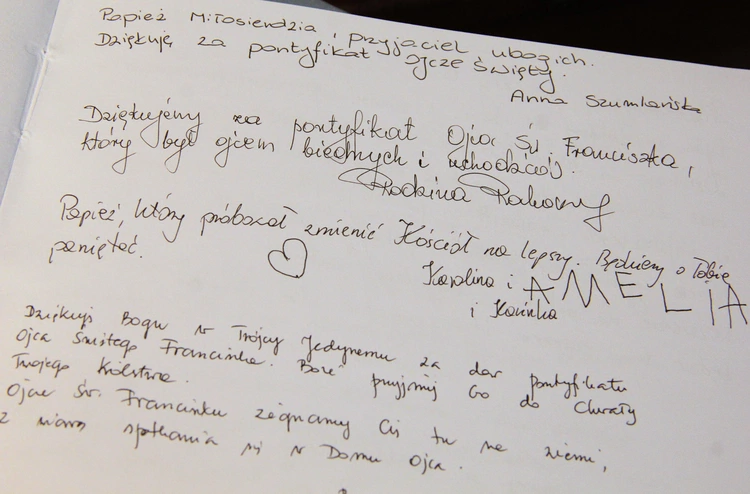 Papież Miłosierdzia, przyjaciel ubogich.
Dziękuję za pontyfikat Ojcze Święty.
Anna Szumlańska
Dziękujemy za pontyfikat Ojca Św. Franciszka,
który był ojcem biednych i uchodźców.
Rodzina
Papież, który próbował zmienić Kościół na lepszy. Będziemy o Tobie
pamiętać.
Karolina i AMELIA
i Kasieńka
Dziękuję Bogu w Trójcy Jedynemu za dar pontyfikatu
Ojca Świętego Franciszka. Boże przyjmij Go do Chwały
Twojego Królestwa.
Ojcze Św. Franciszku żegnamy Cię tu na ziemi,
z wiarą spotkania się w Domu Ojca.